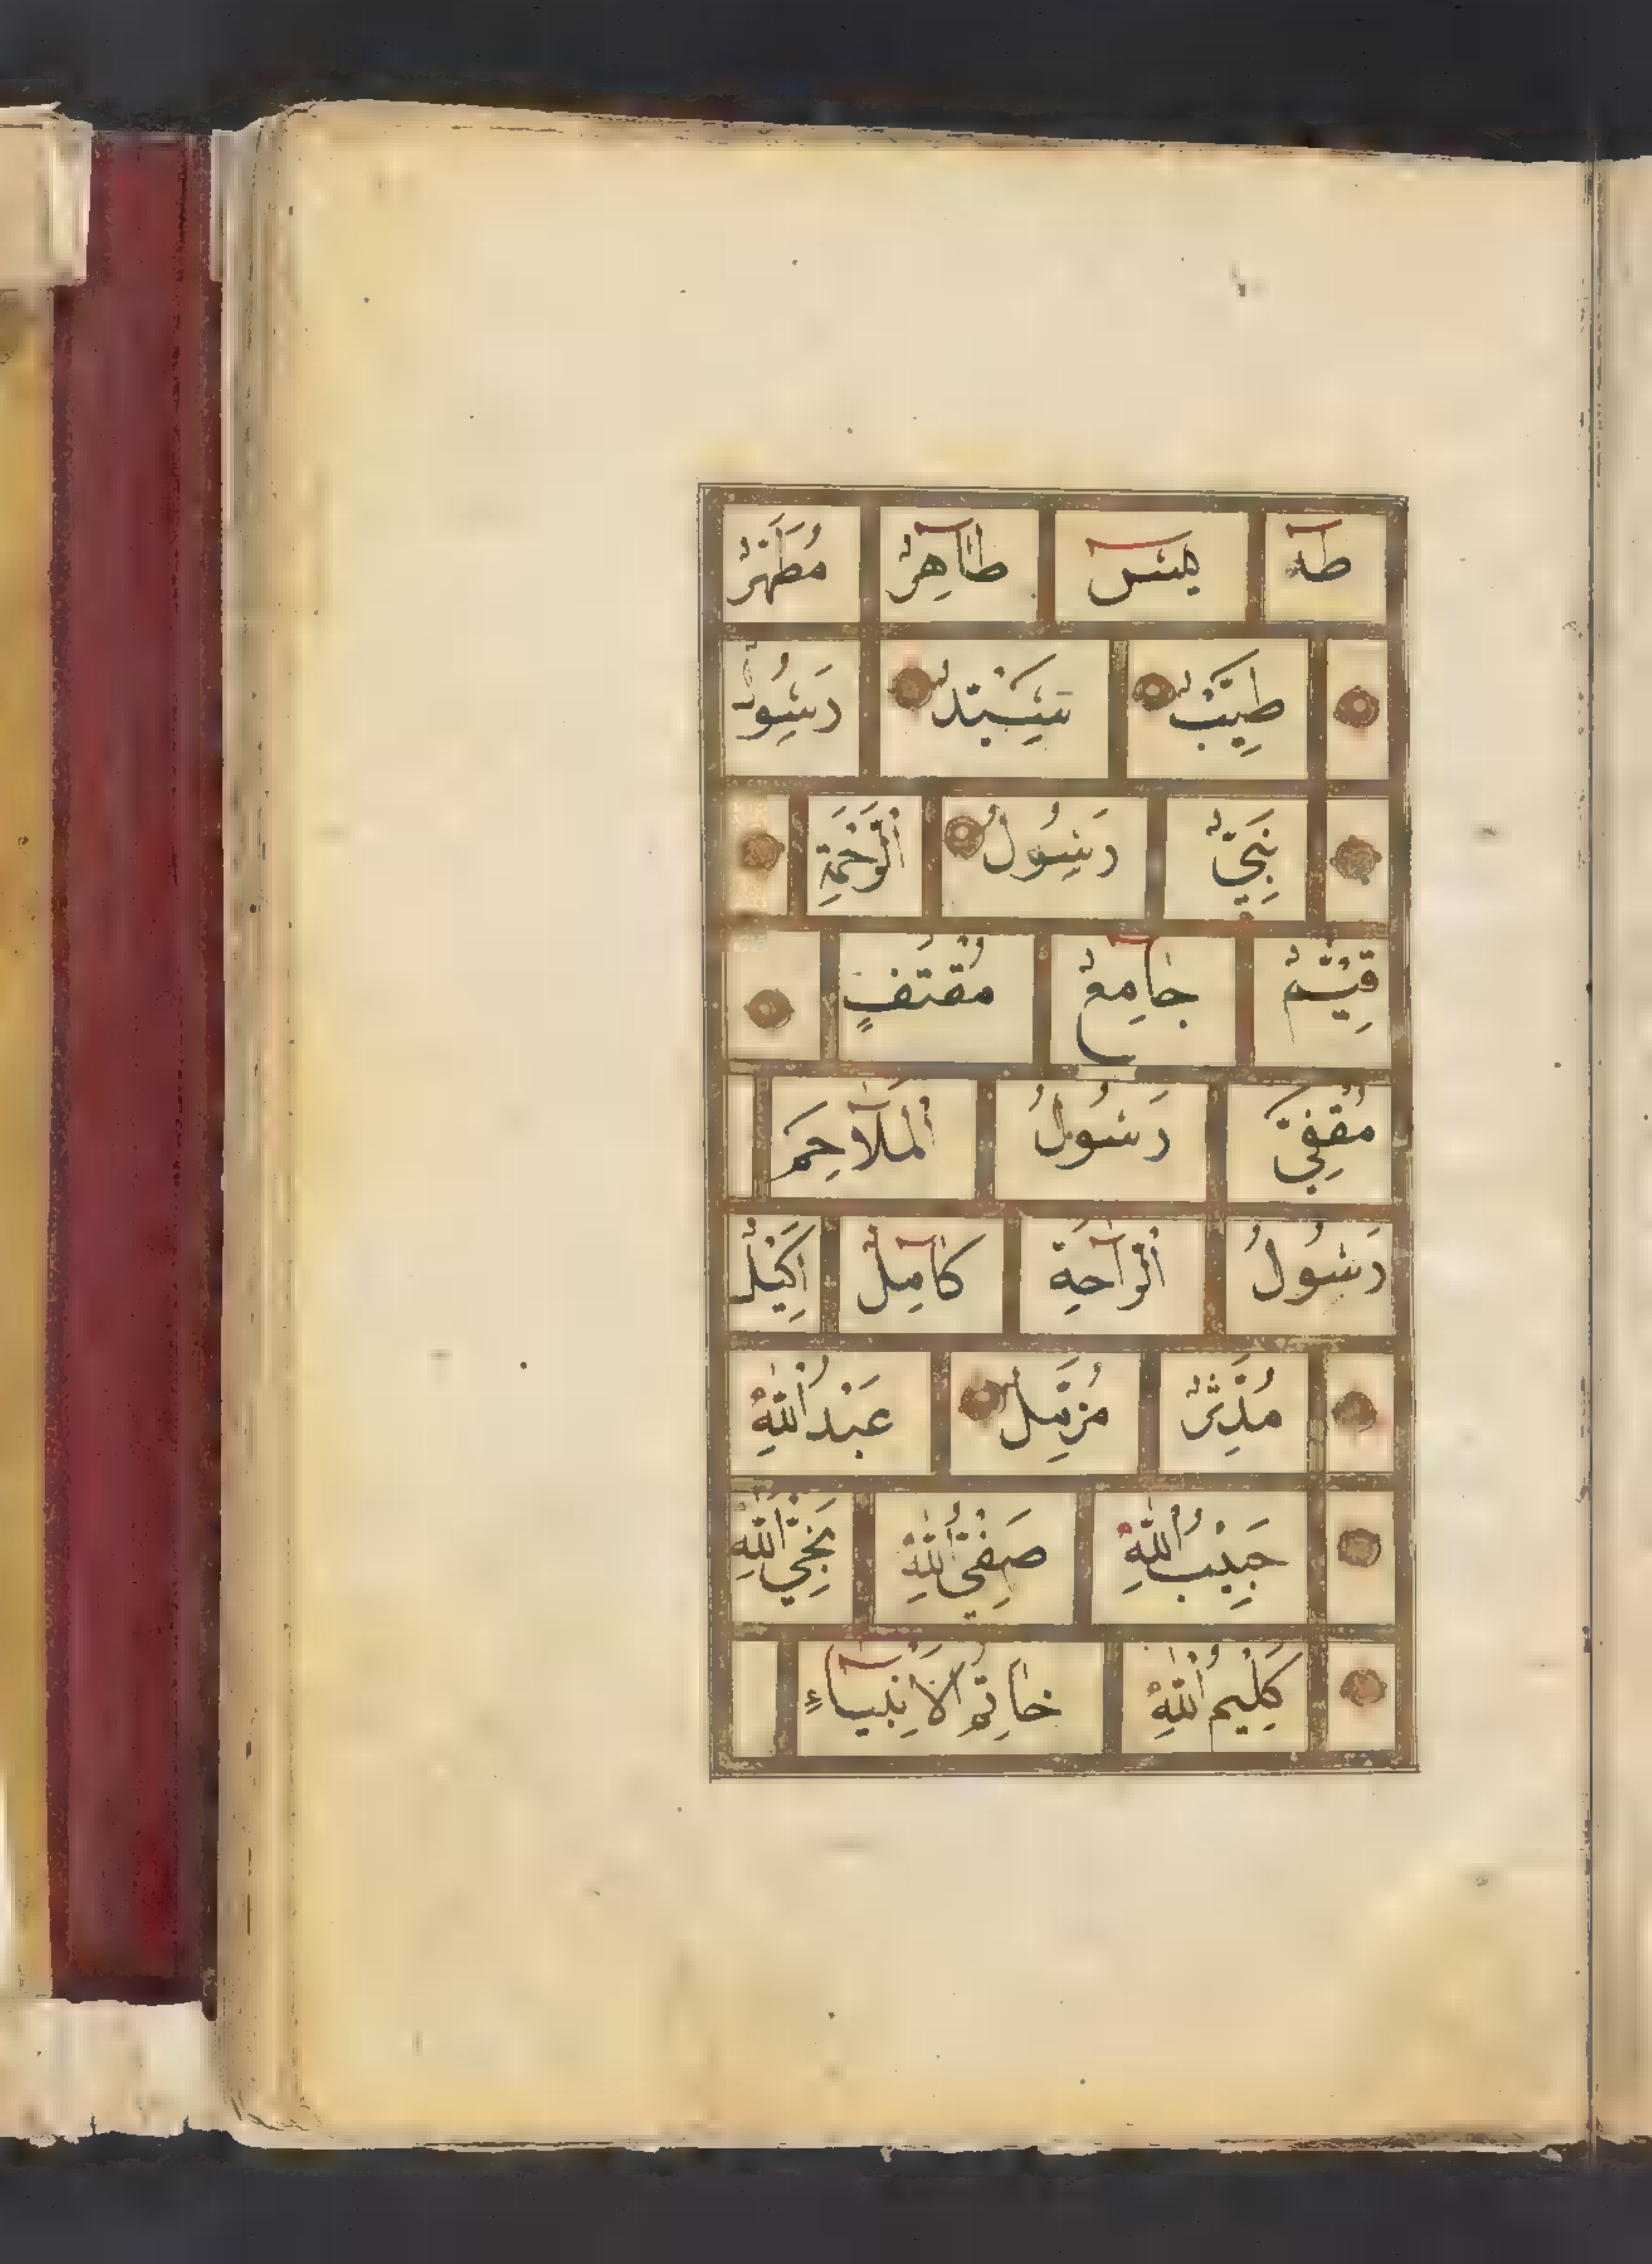 طه يس طَاهِرٌ مُطَهَّرٌ
طَيِّبٌ سَيِّدٌ رَسُولٌ
نَبِيٌّ رَسُولُ ٱلرَّحْمَةِ
قَيِّمٌ جَامِعٌ مُقْتَفٍ
مُقَفِّيٌ رَسُولُ ٱلْمَلَاحِمِ
رَسُولُ ٱلرَّاحَةِ كَامِلٌ إِكْلِيلٌ
مُدَّثِّرٌ مُزَّمِّلٌ عَبْدُ ٱللّٰهِ
حَبِيْبُ ٱللّٰهِ صَفِيُّ ٱللّٰهِ نَجِيُّ ٱللّٰهِ
كَلِيْمُ ٱللّٰهِ خَاتِمُ الْأَنْبِيَاءِ